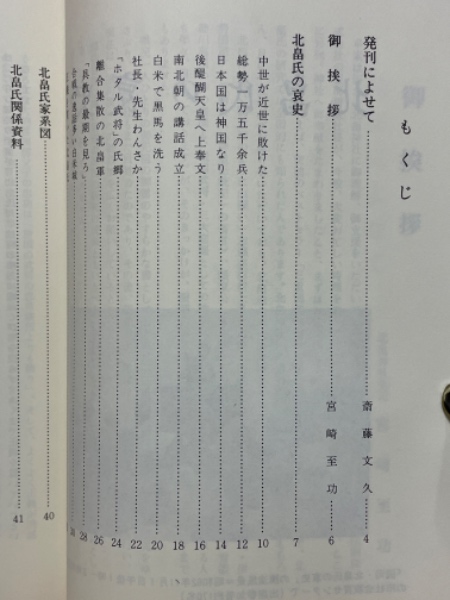 もくじ
発刊によせて 斎藤文久 4
御挨拶 宮崎至功 6
北畠氏の哀史 7
中世が近世に敗けた 10
総勢一万五千余兵 12
日本国は神国なり 14
後醍醐天皇へ上奏文 16
南北朝の講話成立 18
白米で黒馬を洗う 20
社長・先生わんさか 22
「ホタル武将」の氏郷 24
離合集散の北畠軍 26
「具教の最期を見ろ」 28
合戦の逸話多い白米城
北畠氏家系図 40
北畠氏関係資料 41